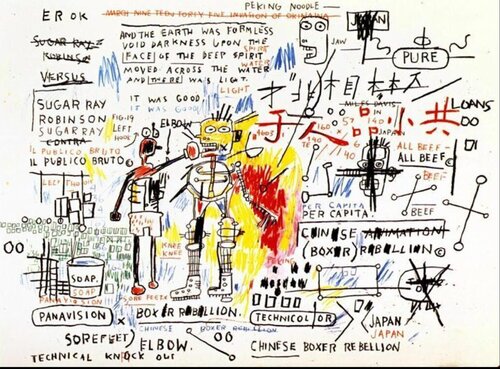 PEKING NOODLE—
EROK
MARCH NINE TEEN FORTY FIVE INVASION OF OKINAWA
AND THE EARTH WAS FORMLESS
VOID DARKNESS UPON THE
FACE OF THE DEEP SPIRIT
MOVED ACROSS THE WATER
AND THERE WAS LIGHT.
SPIRIT
WATER
LIGHT
IT WAS GOOD
IT WAS GOOD
SUGAR RAY
ROBINSON
VERSUS
SUGAR RAY
ROBINSON
SUGARRAY
CONTRA
IL PUBLICO BRUTO
IL PUBLICO BRUTO©
FIG.19
LEFT
HOOK
ELBOW
LEFT
JAPAN
JAW
PURE
MILES DAVIS
IN
JAPAN
LOANS
ALL BEEF
ALL BEEF©
BEEF
BEEF
PER CAPITA
PER CAPITA.
CHINESE ANIMATION
(BOXER) REBELLION©
KNEE
KNEE
PEKING
SOAP.
SOAP
PANAVISION
PANAVISION
SORE FEET
BOXER REBELLION.
CHINESE BOXER REBELLION
TECHNICOLOR
JAPAN
JAPAN
SOREFEET
ELBOW.
TECHNICAL KNOCK OUT
CHINESE BOXER REBELLION